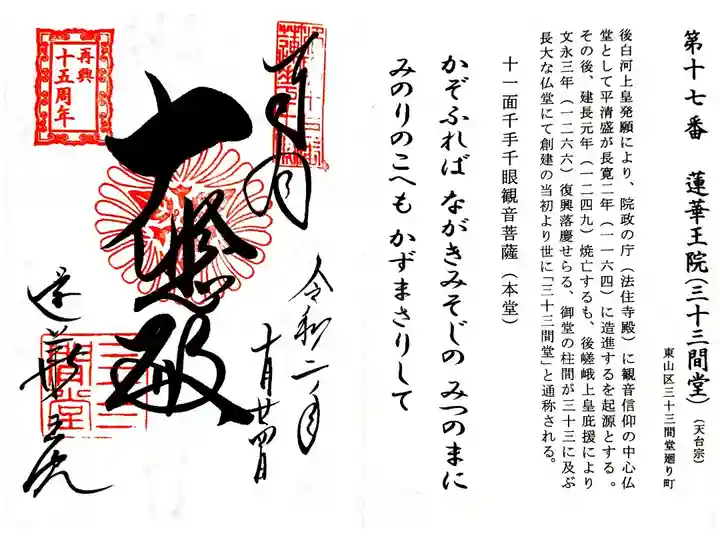 第十七番 蓮華王院(三十三間堂)(天台宗)
東山区三十三間堂廻り町
後白河上皇発願により、院政の庁(法住寺殿)に観音信仰の中心仏
堂として平清盛が長寛二年(一一六四)に造進するを起源とする。
その後、建長元年(一二四九)焼亡するも、後嵯峨上皇庇援により
文永三年(一二六六)復興落慶せらる、御堂の柱間が三十三に及ぶ
長大な仏堂にて創建の当初より世に「三十三間堂」と通称される。
十一面千手千眼観音菩薩(本堂)
かぞふれば ながきみそじの みつのまに
みのりのこへも かずまさりして
奉拝
大悲殿
令和二年
十月廿四日
蓮華王院
再興
十五周年
三十三
間堂